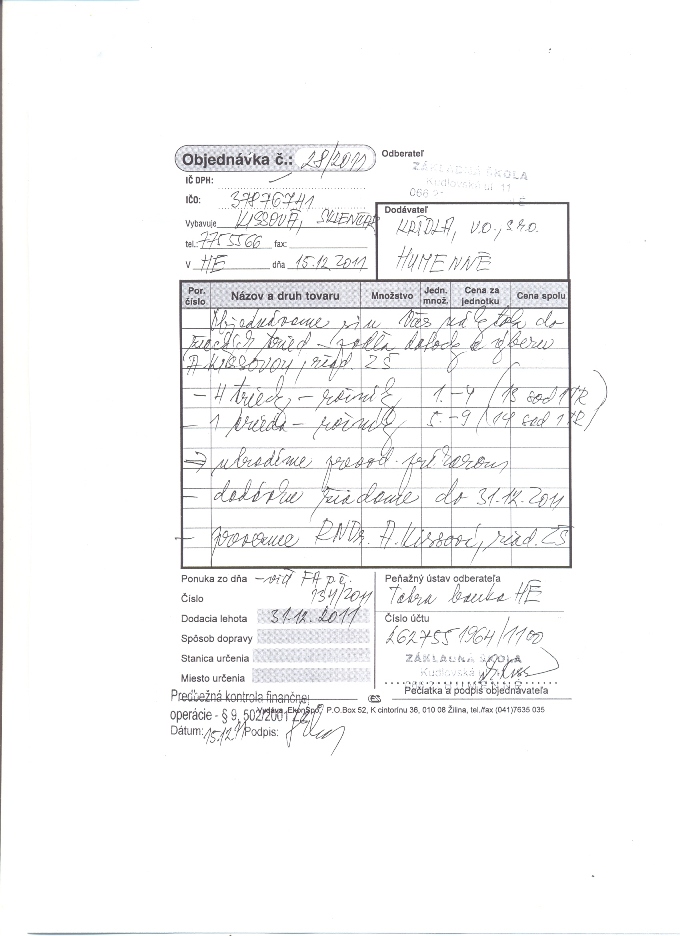 Objednávka č.: 28/2011
Odberateľ
ZÁKLADNÁ ŠKOLA
Kudlovská ul. 11
066
IČ DPH:
IČO: 37876741
Vybavuje KISSOVÁ,
tel.: 7755566 fax:
V HE dňa 15.12.2011
Dodávateľ
KRÍDLA, v.o., s.r.o.
HUMENNÉ
Por. číslo
Názov a druh tovaru
Množstvo
Jedn. množ.
Cena za jednotku
Cena spolu
Objednávame si u Vás do
tried - podľa výberu
A. Kissovou, riad. ZŠ
- 4 triedy - ročník 1.-4
- 1 trieda - ročník 5.-9
→ uhradíme prevod. príkazom
- dodávku žiadame do 31.12.2011
- prevezme RNDr. A. Kissová, riad. ZŠ
Ponuka zo dňa - viď FA
Číslo 134/2011
Dodacia lehota 31.12.2011
Spôsob dopravy
Stanica určenia
Miesto určenia
Peňažný ústav odberateľa
Tatra banka HE
Číslo účtu
2627551964/1100
ZÁKLADNÁ ŠKOLA
Kudlovská
Pečiatka a podpis objednávateľa
Predbežná kontrola finančnej
operácie - § 9, 502/2001
Dátum: 15.12. Podpis:
P.O.Box 52, K cintorínu 36, 010 08 Žilina, tel./fax (041)7635 035